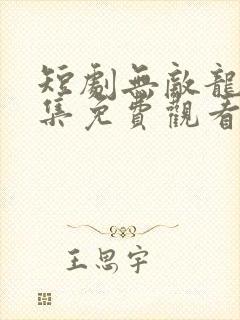 短劇無敵龍
集免費觀看
王思宇